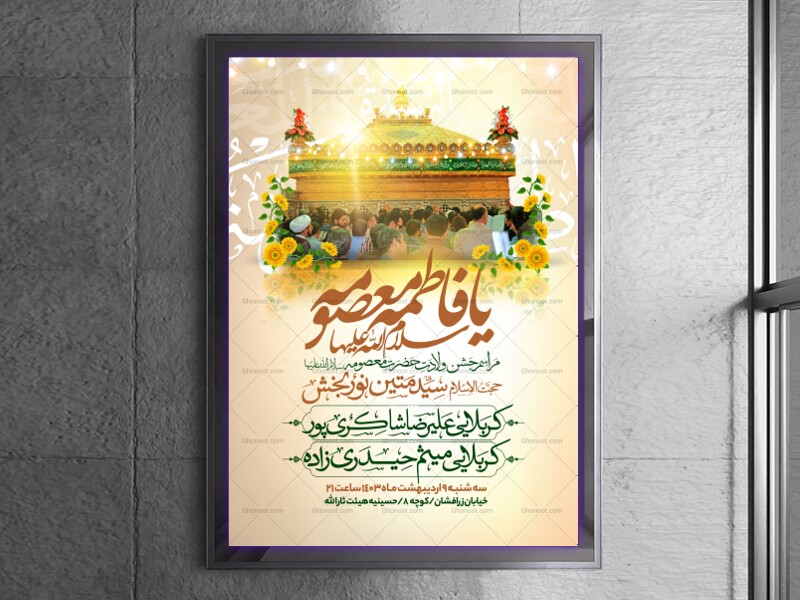 یا فاطمه معصومه
سلام الله علیها
مراسم جشن ولادت حضرت معصومه سلام الله علیها
حجت الاسلام سیّد متین نوربخش
کربلایی علیرضا شاکری پور
کربلایی میثم حیدری زاده
سه شنبه ۹ اردیبهشت ماه ۱۴۰۳ ساعت ۲۱
خیابان زرافشان / کوچه ۸ / حسینیه هیئت ثارالله
Ghonoot.com